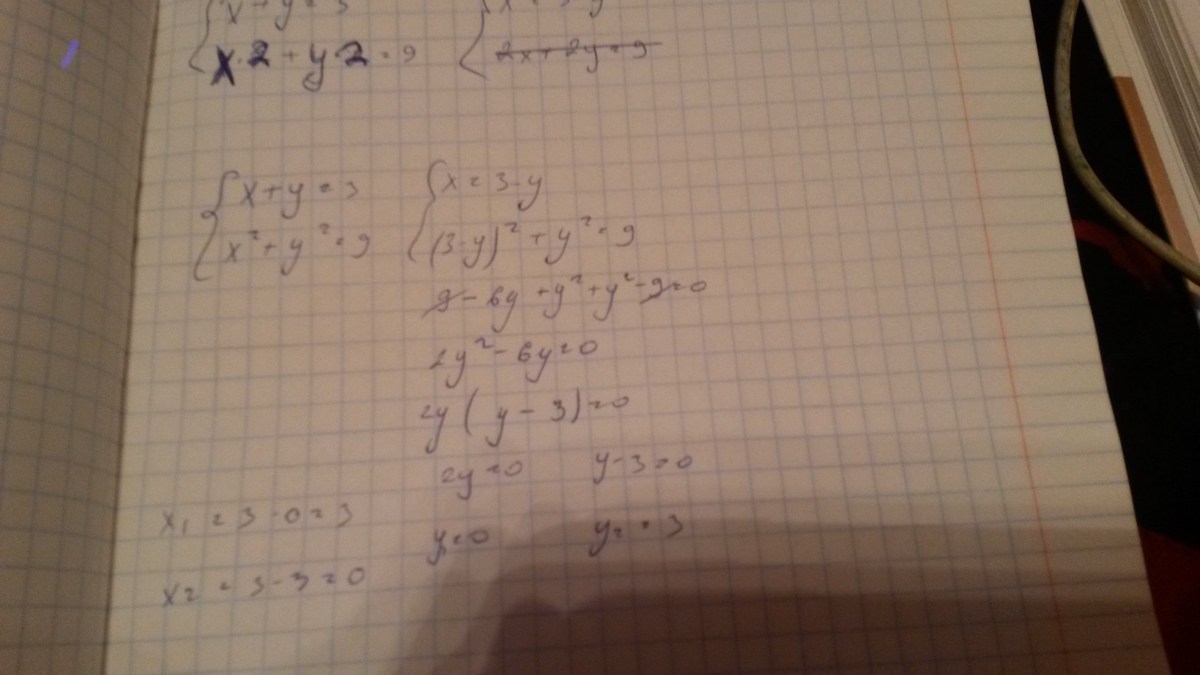 x + y = 3
x·2 + y·2 = 9
x = 3-y
2x + 2y = 9
x + y = 3
x² + y² = 9
x = 3-y
(3-y)² + y² = 9
9 - 6y + y² + y² - 9 = 0
2y² - 6y = 0
2y ( y - 3) = 0
2y = 0 y - 3 = 0
y = 0 y₂ = 3
x₁ = 3 - 0 = 3
x₂ = 3 - 3 = 0